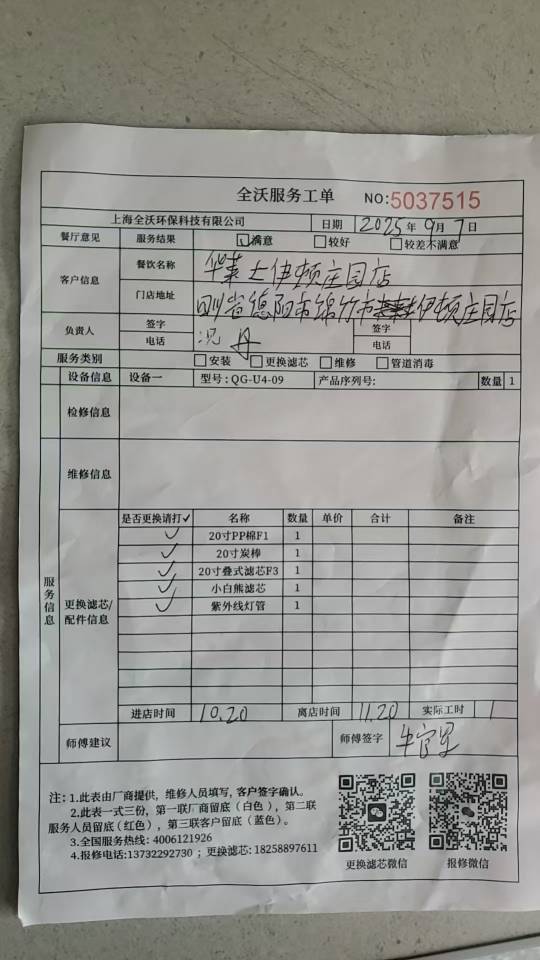 全沃服务工单 NO:5037515
上海全沃环保科技有限公司 日期 2025年9月7日
餐厅意见 服务结果 ☑满意 □较好 □较差不满意
客户信息 餐饮名称 华莱士伊顿庄园店
门店地址 四川省德阳市绵竹市伊顿庄园店
负责人 签字 况丹 签字
电话 电话
服务类别 □安装 □更换滤芯 □维修 □管道消毒
设备信息 设备一 型号: QG-U4-09 产品序列号: 数量 1
检修信息
维修信息
服务信息
更换滤芯/配件信息
是否更换请打✓ 名称 数量 单价 合计 备注
✓ 20寸PP棉F1 1
✓ 20寸炭棒 1
✓ 20寸叠式滤芯F3 1
✓ 小白熊滤芯 1
✓ 紫外线灯管 1
进店时间 10.20 离店时间 11.20 实际工时 1
师傅建议 师傅签字
注: 1.此表由厂商提供, 维修人员填写, 客户签字确认。
2.此表一式三份, 第一联厂商留底(白色), 第二联
服务人员留底(红色), 第三联客户留底(蓝色)。
3.全国服务热线: 4006121926
4.报修电话:13732292730 ; 更换滤芯: 18258897611
更换滤芯微信 报修微信